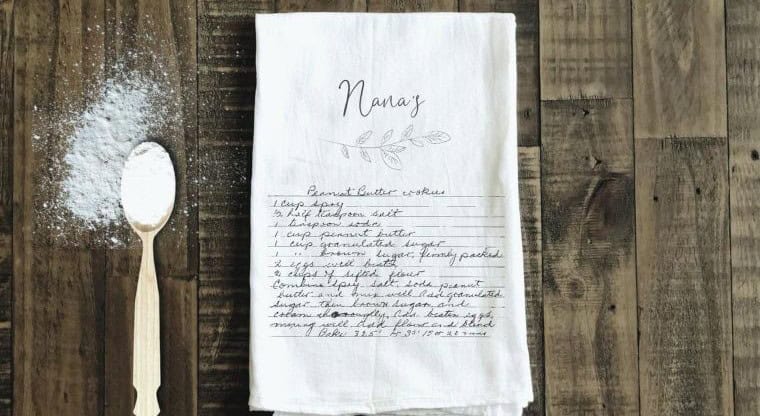 Nana's
Peanut Butter cookies
1 cup spry
½ half teaspoon salt
1 teaspoon soda
1 cup peanut butter
1 cup granulated sugar
1 " brown sugar, firmly packed
2 eggs well
2 cups of sifted flour
Combine spry, salt, soda, peanut
butter and mix well Add granulated
sugar then brown sugar and
cream thoroughly, Add beaten eggs,
mixing well Add flour and blend
Bake 325°